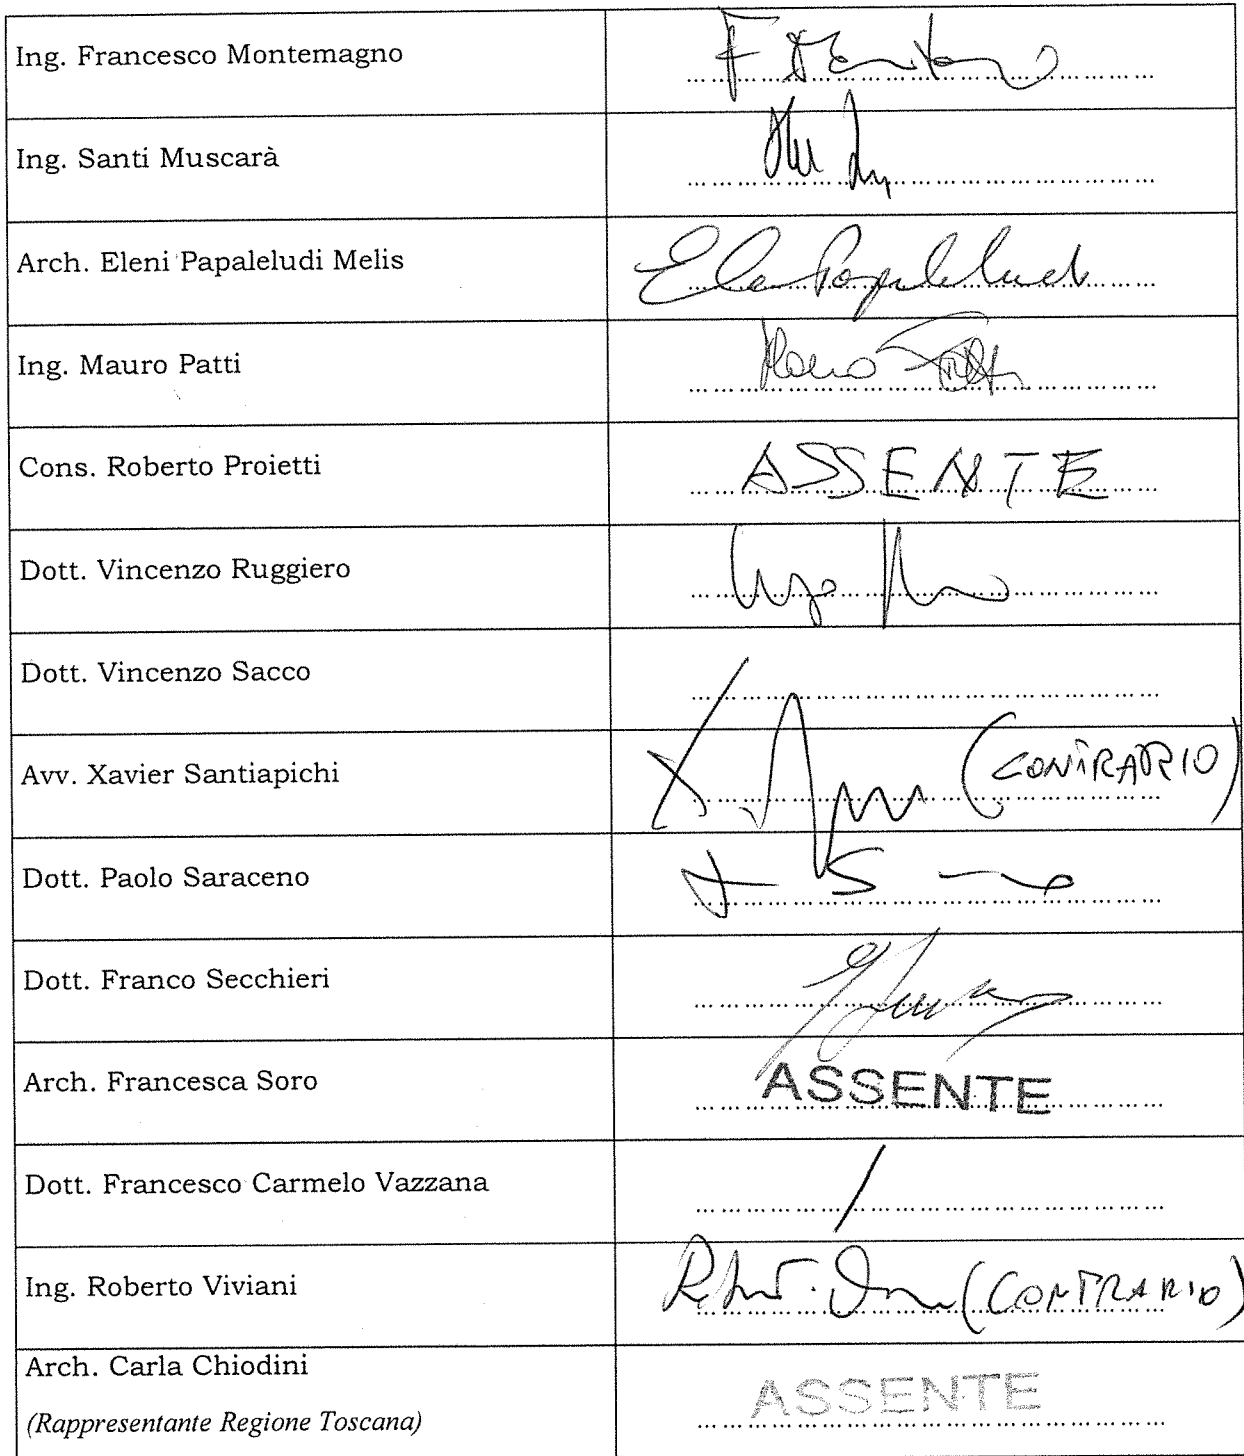 Ing. Francesco Montemagno
Ing. Santi Muscarà
Arch. Eleni Papaleludi Melis
Ing. Mauro Patti
Cons. Roberto Proietti ASSENTE
Dott. Vincenzo Ruggiero
Dott. Vincenzo Sacco
Avv. Xavier Santiapichi (CONTRARIO)
Dott. Paolo Saraceno
Dott. Franco Secchieri
Arch. Francesca Soro ASSENTE
Dott. Francesco Carmelo Vazzana
Ing. Roberto Viviani (CONTRARIO)
Arch. Carla Chiodini
(Rappresentante Regione Toscana) ASSENTE